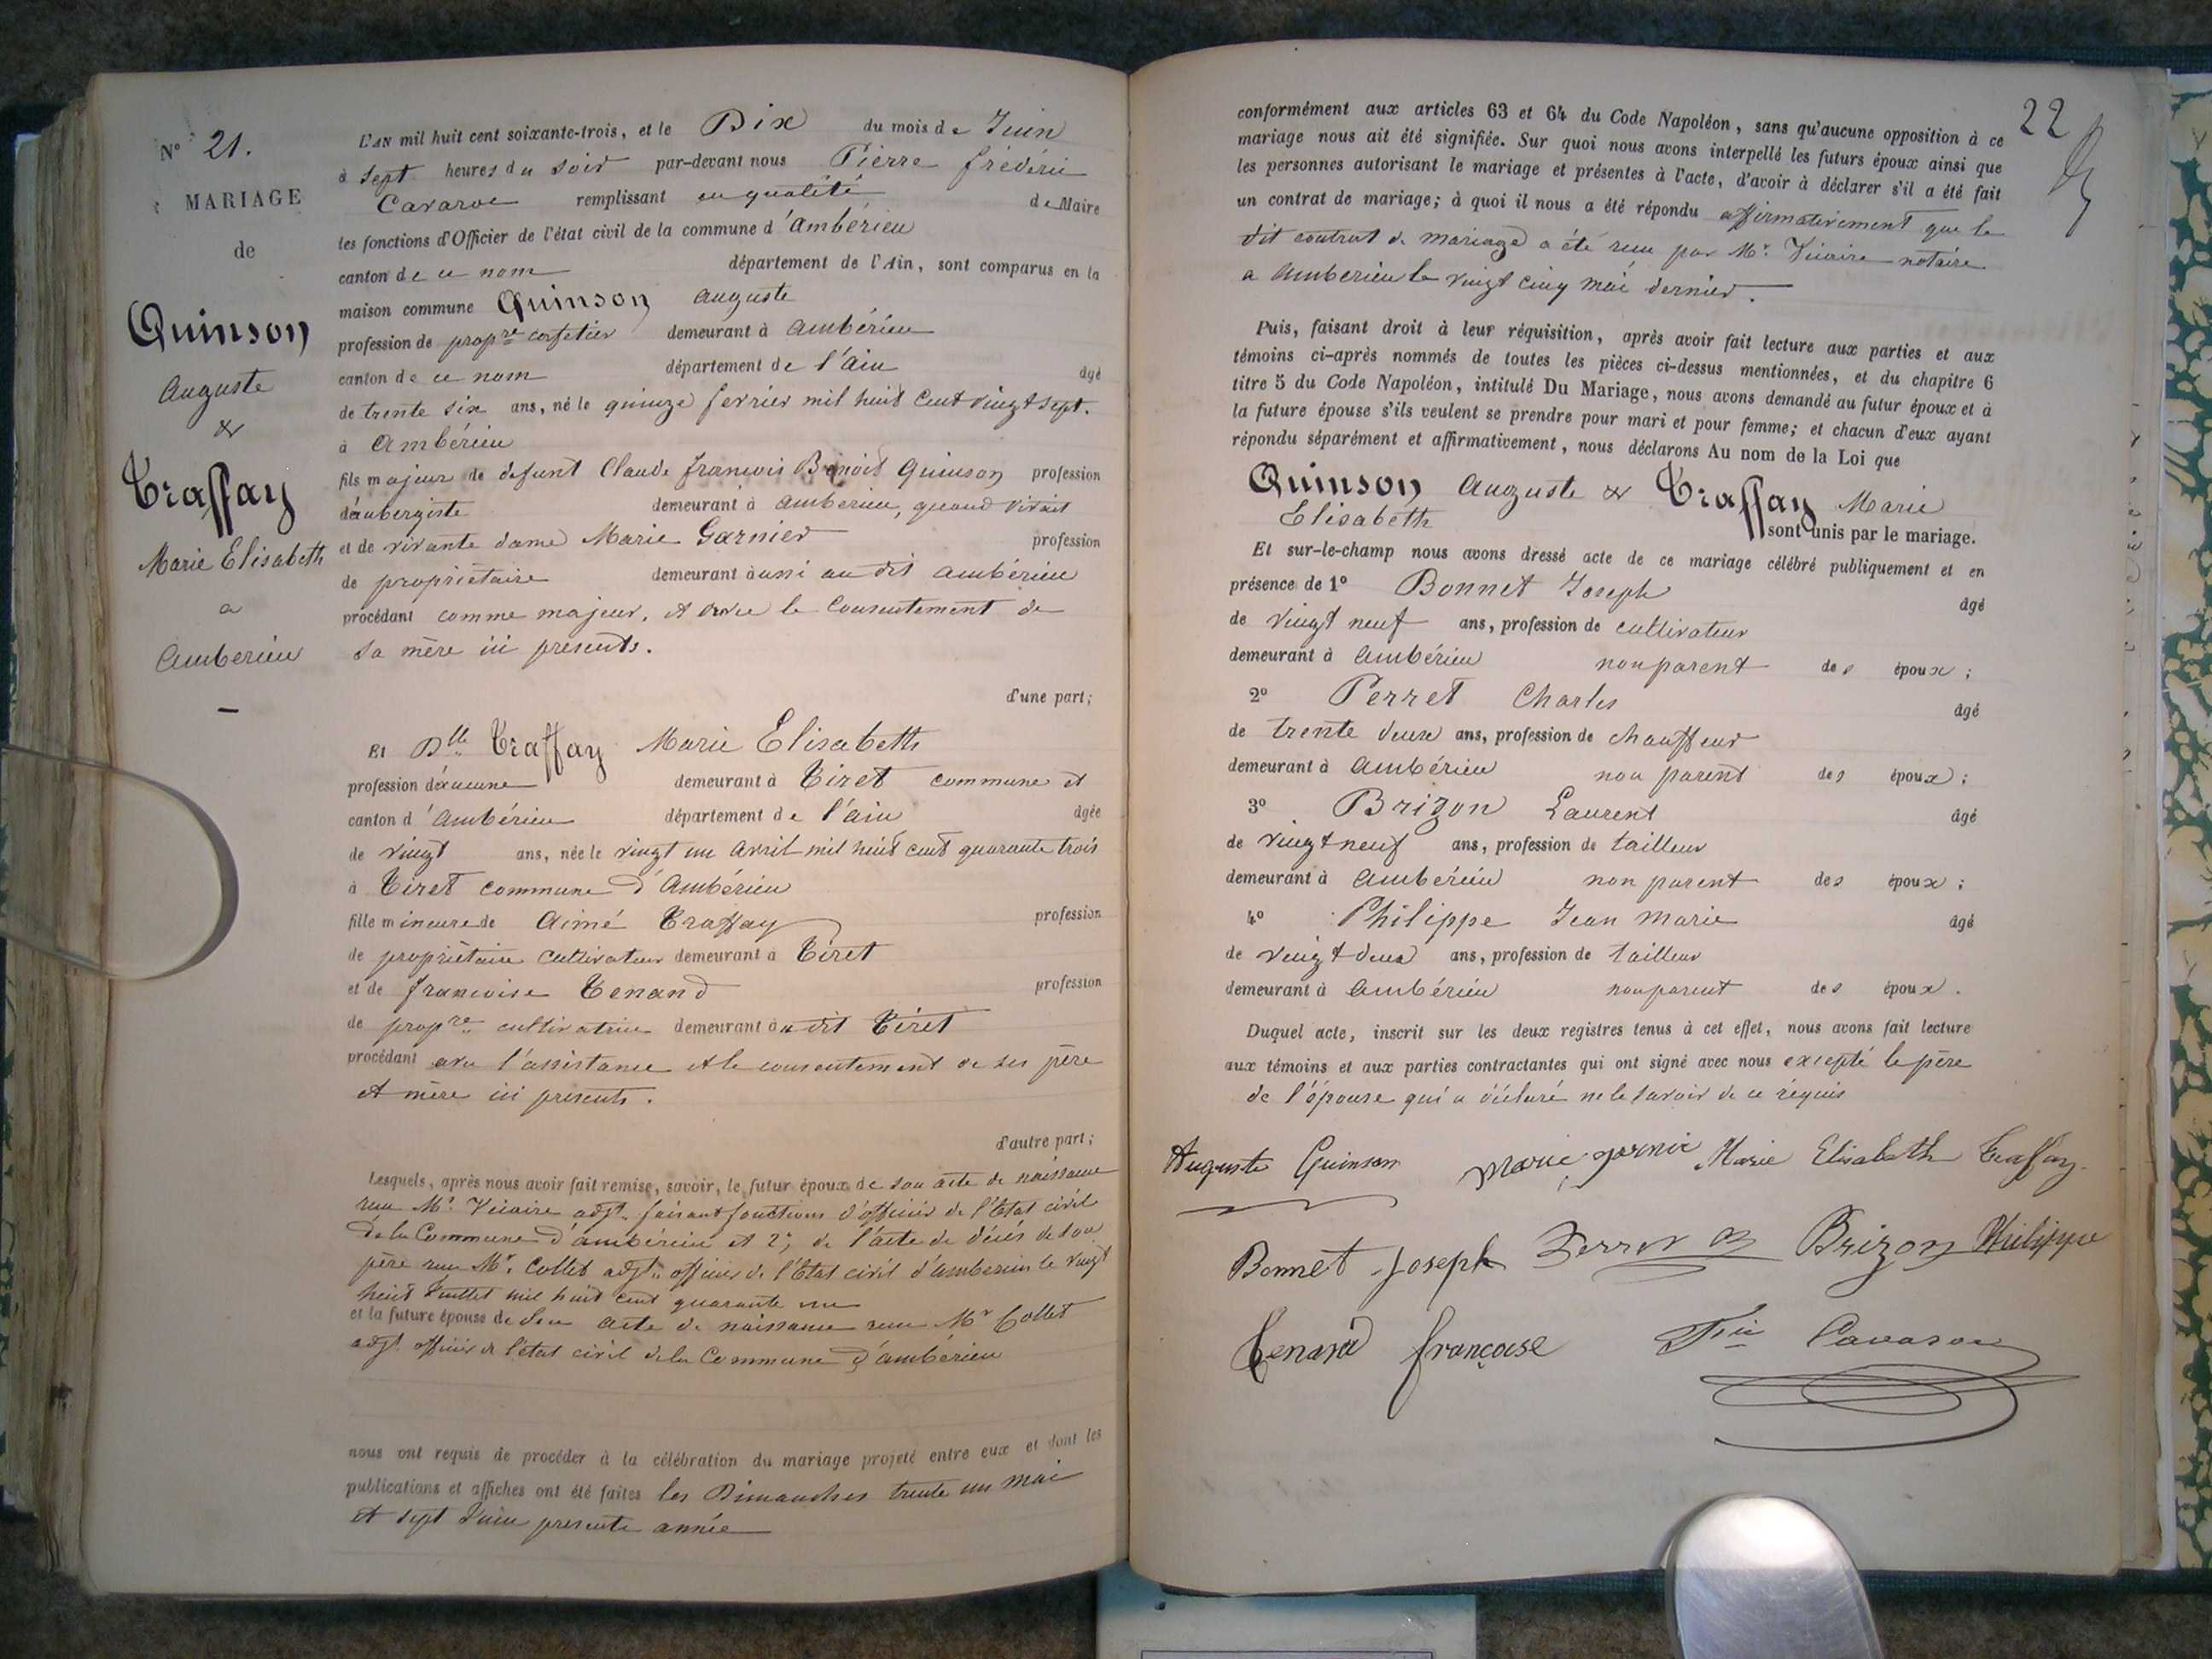 N° 21.
MARIAGE
de
Quinson
Auguste
&
Traffay
Marie Elisabeth
a
Ambérieu
L'AN mil huit cent soixante-trois, et le Dix du mois de Juin
à sept heures du soir par-devant nous Pierre frédéric
Cavaroc remplissant en qualité de Maire
les fonctions d'Officier de l'état civil de la commune d'Ambérieu
canton de ce nom département de l'Ain, sont comparus en la
maison commune Quinson Auguste
profession de propre cafetier demeurant à Ambérieu
canton de ce nom département de l'ain âgé
de trente six ans, né le quinze fevrier mil huit cent vingt sept.
à Ambérieu
fils majeur de defunt Claude francois Benoit Quinson profession
d'aubergiste demeurant à Amberieu, quand vivait
et de vivante dame Marie Garnier profession
de propriétaire demeurant aussi au dit Ambérieu
procédant comme majeur, et avec le consentement de
sa mère ici présente.
d'une part;
Et Dlle Traffay Marie Elisabeth
profession d'aucune demeurant à Tiret commune et
canton d'Ambérieu département de l'ain âgée
de vingt ans, née le vingt un avril mil huit cent quarante trois
à Tiret commune d'Ambérieu
fille mineure de Aimé Traffay profession
de propriétaire cultivateur demeurant à Tiret
et de francoise Tenand profession
de propre cultivatrice demeurant audit Tiret
procédant avec l'assistance et le consentement de ses père
et mère ici présents.
d'autre part;
Lesquels, après nous avoir fait remise, savoir, le futur époux de son acte de naissance
recu Mr Vicaire adjt faisant fonctions d'officier de l'Etat civil
de la Commune d'ambérieu et 2°, de l'acte de décès de son
père recu Mr Collet adjt officier de l'Etat civil d'amberieu le vingt
huit Juillet mil huit cent quarante un
et la future épouse de son acte de naissance recu Mr Collet
adjt officier de l'état civil de la Commune d'ambérieu
nous ont requis de procéder à la célébration du mariage projeté entre eux et dont les
publications et affiches ont été faites les Dimanches trente un mai
et sept Juin presente année
22
conformément aux articles 63 et 64 du Code Napoléon, sans qu'aucune opposition à ce
mariage nous ait été signifiée. Sur quoi nous avons interpellé les futurs époux ainsi que
les personnes autorisant le mariage et présentes à l'acte, d'avoir à déclarer s'il a été fait
un contrat de mariage; à quoi il nous a été répondu affirmativement que le
dit contrat de mariage a été recu par Mr Vicaire notaire
a Amberieu le vingt cinq mai dernier.
Puis, faisant droit à leur réquisition, après avoir fait lecture aux parties et aux
témoins ci-après nommés de toutes les pièces ci-dessus mentionnées, et du chapitre 6
titre 5 du Code Napoléon, intitulé Du Mariage, nous avons demandé au futur époux et à
la future épouse s'ils veulent se prendre pour mari et pour femme; et chacun d'eux ayant
répondu séparément et affirmativement, nous déclarons Au nom de la Loi que
Quinson Auguste & Traffay Marie
Elisabeth sont unis par le mariage.
Et sur-le-champ nous avons dressé acte de ce mariage célébré publiquement et en
présence de 1° Bonnet Joseph âgé
de vingt neuf ans, profession de cultivateur
demeurant à Ambérieu non parent des époux;
2° Perret Charles âgé
de trente deux ans, profession de chauffeur
demeurant à Ambérieu non parent des époux;
3° Brizon Laurent âgé
de vingt neuf ans, profession de tailleur
demeurant à Ambérieu non parent des époux;
4° Philippe Jean Marie âgé
de vingt deux ans, profession de tailleur
demeurant à Ambérieu non parent des époux.
Duquel acte, inscrit sur les deux registres tenus à cet effet, nous avons fait lecture
aux témoins et aux parties contractantes qui ont signé avec nous excepté le père
de l'épouse qui a déclaré ne le savoir de ce requis
Auguste Quinson Marie garnier Marie Elisabeth Traffay
Bonnet Joseph Perret Brizon Philippe
Tenand françoise Fic Cavaroc